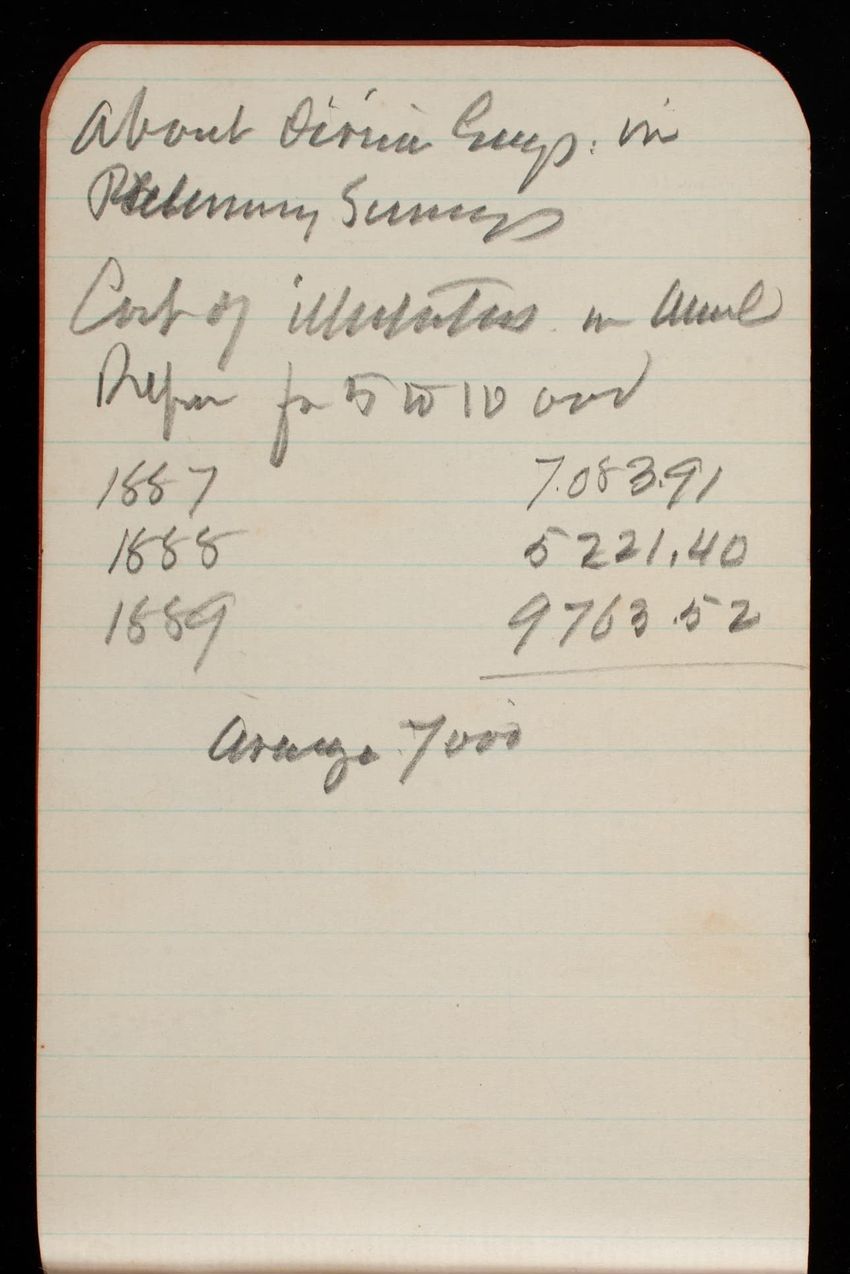 About Divisin Engs. in
Preliminary Surveys
Cost of illustrations in Annul
Repor for 5 to 10 
1887 7.083.91
1888 5221.40
1889 9763.52
Average 7000